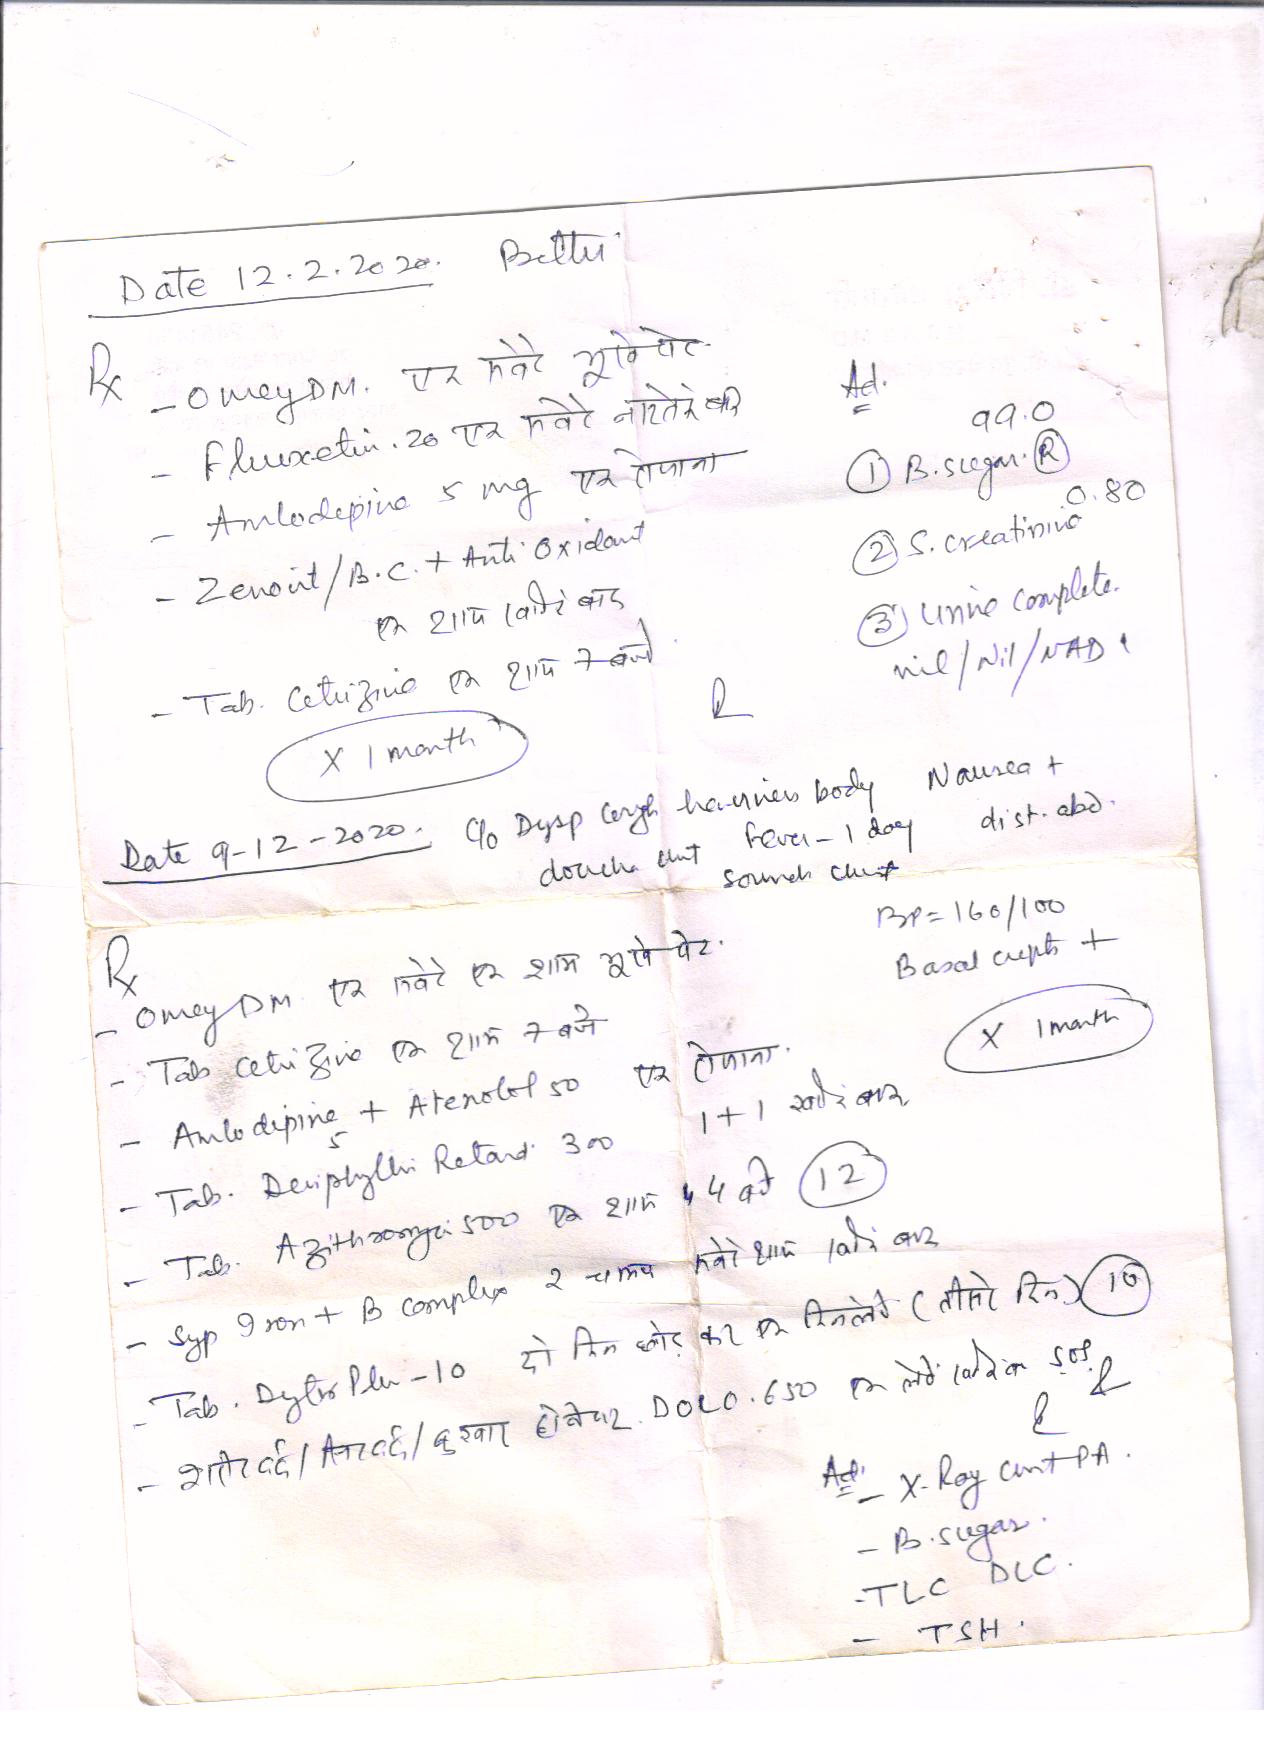 Date 12.2.2020. Better
Rx
- Omey DM. एक सवेरे भूखे पेट.
- Fluxetin. 20 एक सवेरे नाश्ते के बाद
- Amlodepine 5 mg एक रोजाना
- /B.C. + Anti Oxidant
एक शाम खाने के बाद
- Tab. Cetrizine एक शाम 7 बजे
X 1 month
Ad.
99.0
① B. sugar. Ⓡ
0.80
② S. creatinine
③ Urine complete.
nil/Nil/NAD
Date 9-12-2020. C/o Dysp cough heaviness body Nausea +
fever - 1 day dist. abd.
BP = 160/100
Basal crepts +
X 1 month
Rx
- Omey DM एक सवेरे एक शाम भूखे पेट.
- Tab Cetrizine एक शाम 7 बजे
- Amlodipine 5 + Atenolol 50 एक रोजाना.
- Tab. Deriphyllin Retard 300 1 + 1 खाने के बाद
- Tab. Azithromycin 500 एक शाम 4 बजे 12
- Syp Iron + B complex 2 चम्मच सवेरे शाम खाने के बाद
- Tab. Dytor Plus - 10 दो दिन छोड़ कर एक दिन लेवें (तीसरे दिन) 10
- शरीर दर्द/सिर दर्द/बुखार होने पर DOLO.650 एक लेवें SOS
Ad:
- X-Ray chest PA.
- B. sugar.
- TLC DLC.
- TSH.